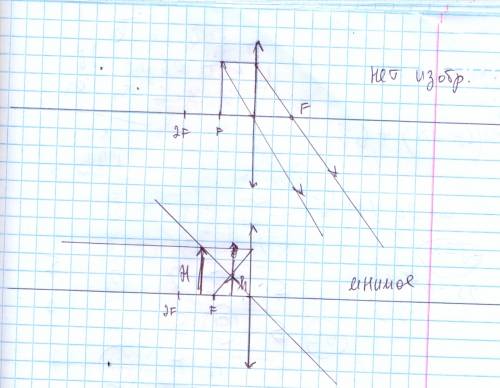 нет изобр.
F
2F F
H h
мнимое
2F F